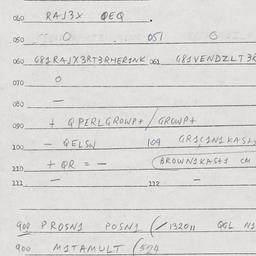 040 RAJ3X QEQ .
050 0 051 0
060 G81RAJX3RT3RHER1NK 061 G81VENDZLT3R
070 0
080 —
090 + QPERLGROWP+/GROWP+
100 — QELSW 109 GR1C1N1KAS+1
110 + QR = — (BROWN1KAS+1 CM
111 — 112 —
900 PROSN1 POSN1 (/132011 QGL N1
900 M1TAMULT (524